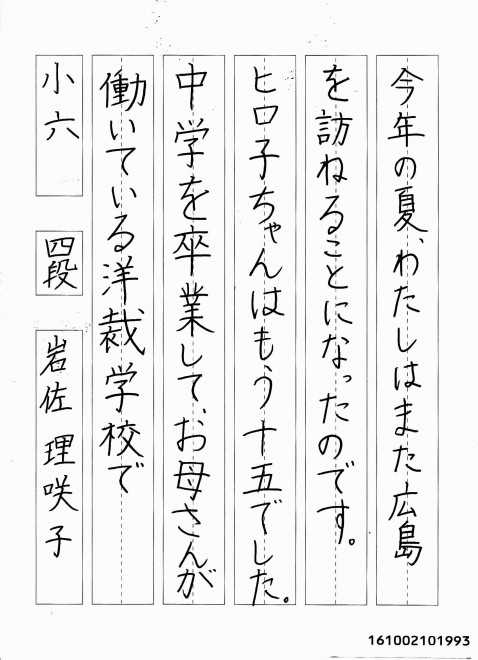 今年の夏、わたしはまた広島
を訪ねることになったのです。
ヒロ子ちゃんはもう十五でした。
中学を卒業して、お母さんが
働いている洋裁学校で
小六 四段 岩佐理咲子
161002101993